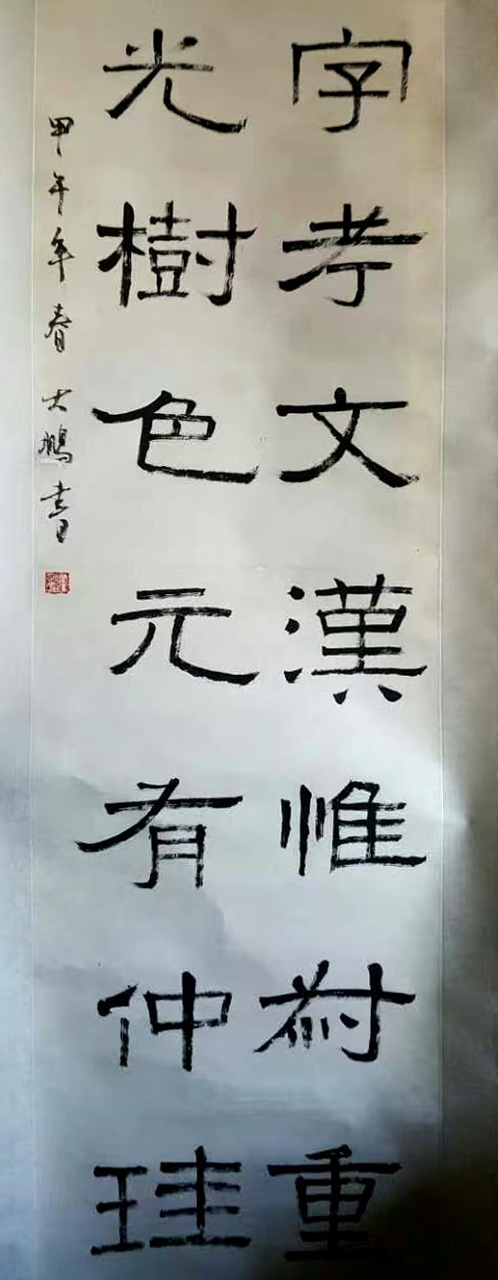 字考文漢惟叔重
光樹色元有仲珪
甲午年春大鵬書